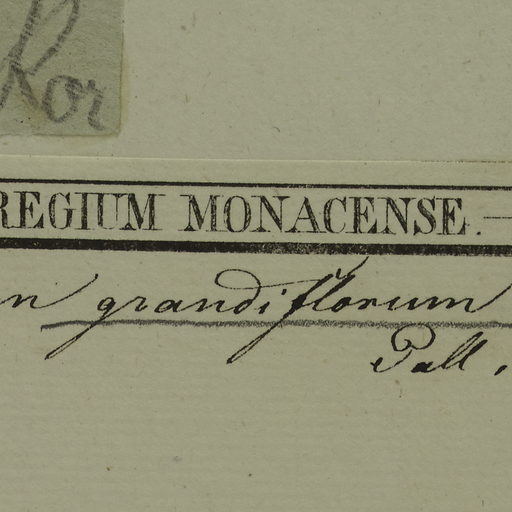 Kor
REGIUM MONACENSE.
n grandiflorum
Pall.